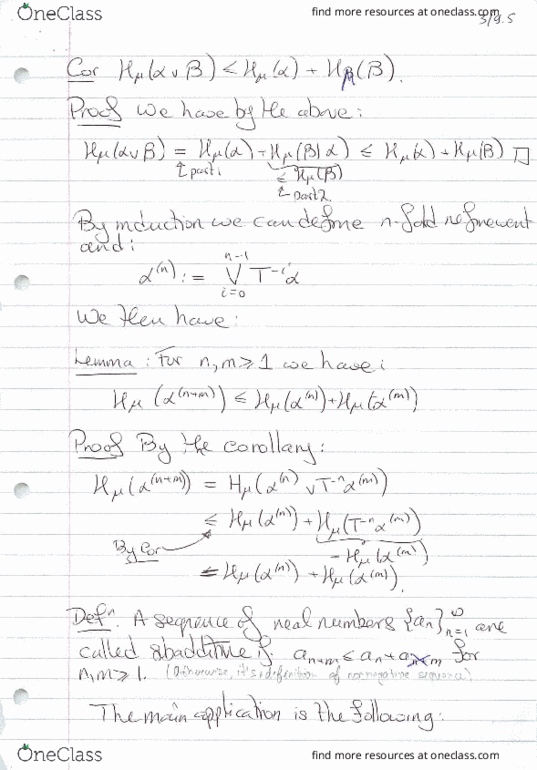 OneClass
find more resources at oneclass.com
3/9.5
Cor H_μ(α ∨ β) ≤ H_μ(α) + H_μ(β).
Proof We have by the above:
H_μ(α∨β) = H_μ(α) + H_μ(β|α) ≤ H_μ(α) + H_μ(β) □
↑ part 1
≤ H_μ(β)
↑ part 2
By induction we can define n-fold refinement
and:
α^(n) := ⋁_{i=0}^{n-1} T^{-i}α
We then have:
Lemma: For n,m ≥ 1 we have:
H_μ(α^(n+m)) ≤ H_μ(α^(n)) + H_μ(α^(m))
Proof By the corollary:
H_μ(α^(n+m)) = H_μ(α^(n) ∨ T^{-n}α^(m))
≤ H_μ(α^(n)) + H_μ(T^{-n}α^(m))
By Cor
= H_μ(α^(m))
= H_μ(α^(n)) + H_μ(α^(m)).
Defⁿ. A sequence of real numbers {a_n}_{n=1}^∞ are
called subadditive if a_{n+m} ≤ a_n + a_m for
n,m ≥ 1. (Otherwise, it's definition of nonnegative sequence)
The main application is the following:
OneClass
find more resources at oneclass.com